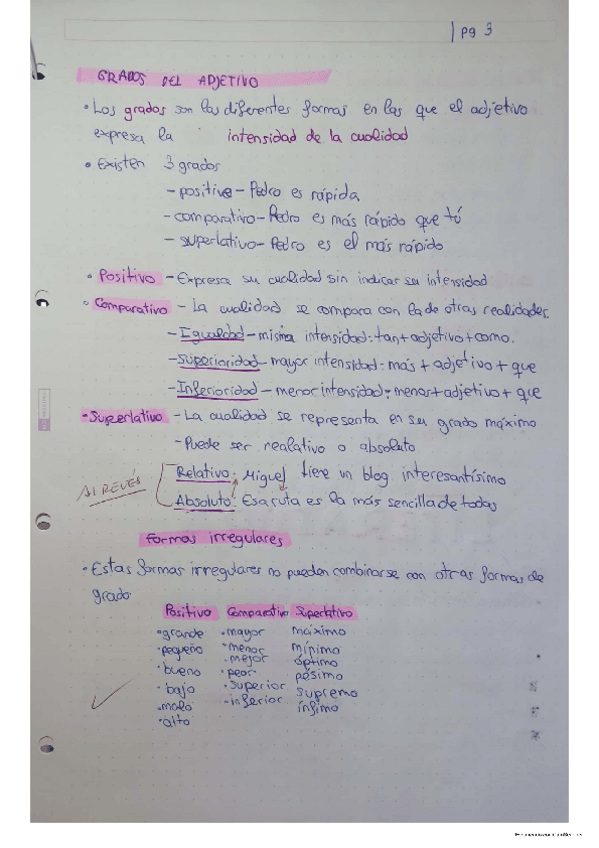 pg 3
GRADOS DEL ADJETIVO
• Los grados son las diferentes formas en las que el adjetivo
expresa la intensidad de la cualidad
• Existen 3 grados
- positive - Pedro es rápida
- comparativo - Pedro es más rápido que tú
- superlativo - Pedro es el más rápido
• Positivo - Expresa su cualidad sin indicar su intensidad
• Comparativo - La cualidad se compara con la de otras realidades
- Igualdad - misma intensidad: tan + adjetivo + como.
- Superioridad - mayor intensidad: más + adjetivo + que
- Inferioridad - menor intensidad: menos + adjetivo + que
• Superlativo - La cualidad se representa en su grado máximo
- Puede ser realativo o absoluto
Relativo: Miguel tiene un blog interesantísimo
AL REVÉS
Absoluto: Esa ruta es la más sencilla de todas
formas irregulares
• Estas formas irregulares no pueden combinarse con otras formas de
grado
Positivo Comparativo Superlativo
• grande • mayor máximo
• pequeño • menor mínimo
• mejor óptimo
• bueno • peor pésimo
• bajo • superior supremo
• malo - inferior ínfimo
• alto